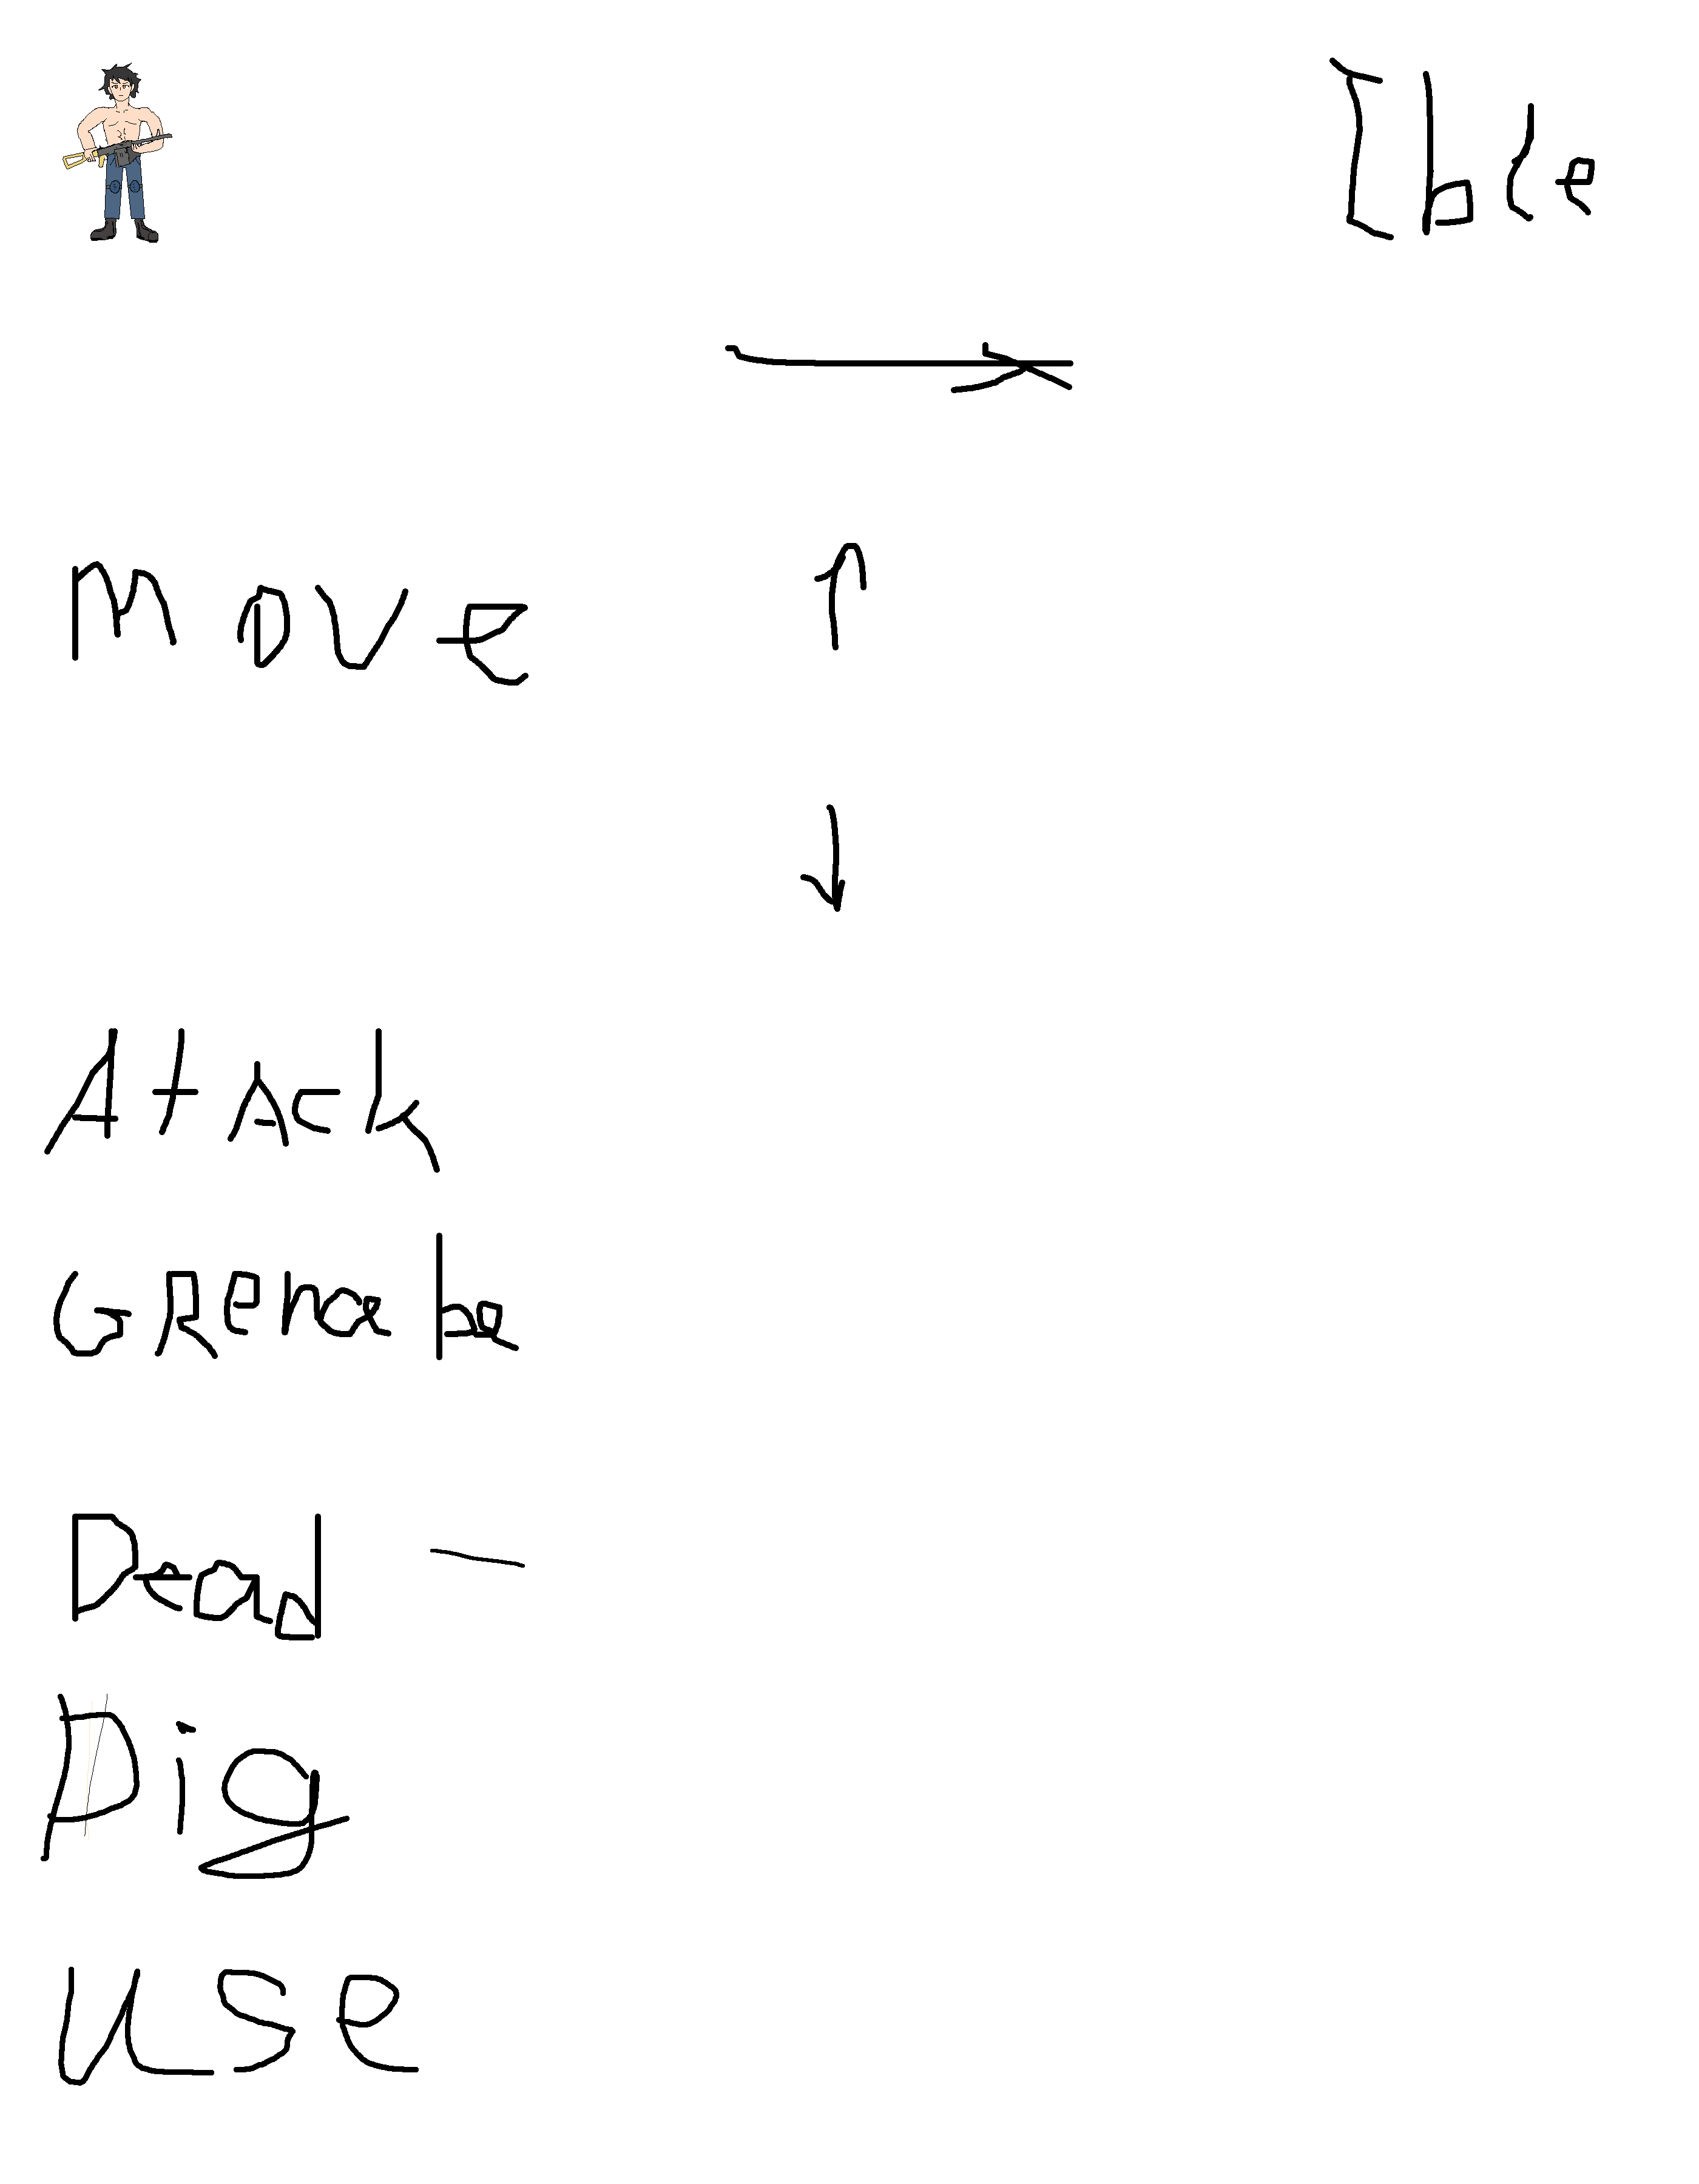 Ible
Move
Atack
GRenabe
Dead
Dig
use